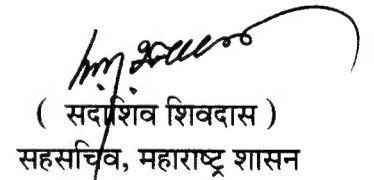 ( सदाशिव शिवदास )
सहसचिव, महाराष्ट्र शासन